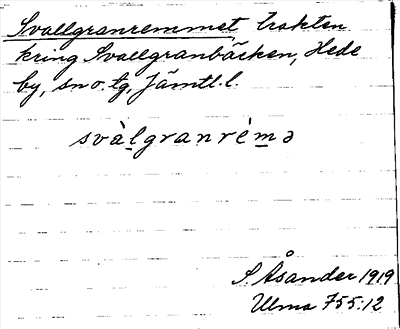 Svallgranremmet, trakten
kring Svallgranbäcken, Hede
by, sn o. tg, Jämtl. l.
svàlgranrèmə
S. Åsander 1919
Ulma 755:12